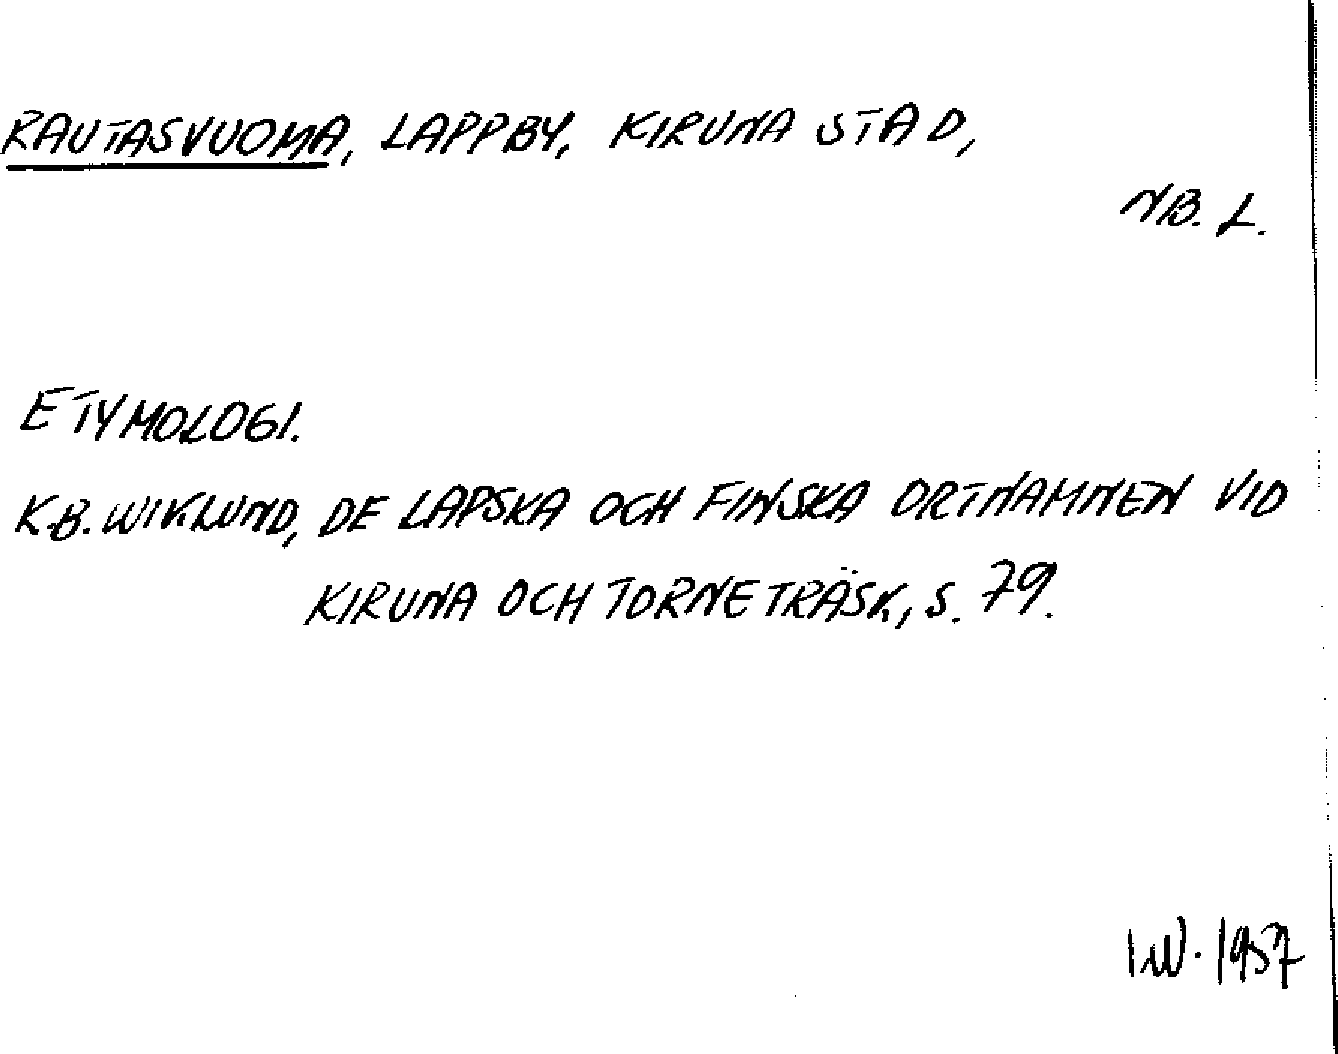 RAUTASVUOMA, LAPPBY, KIRUNA STAD,
NB. L.
ETYMOLOGI.
K.B. WIKLUND, DE LAPSKA OCH FINSKA ORTNAMNEN VID
KIRUNA OCH TORNE TRÄSK, S. 79.
I.W. 1957